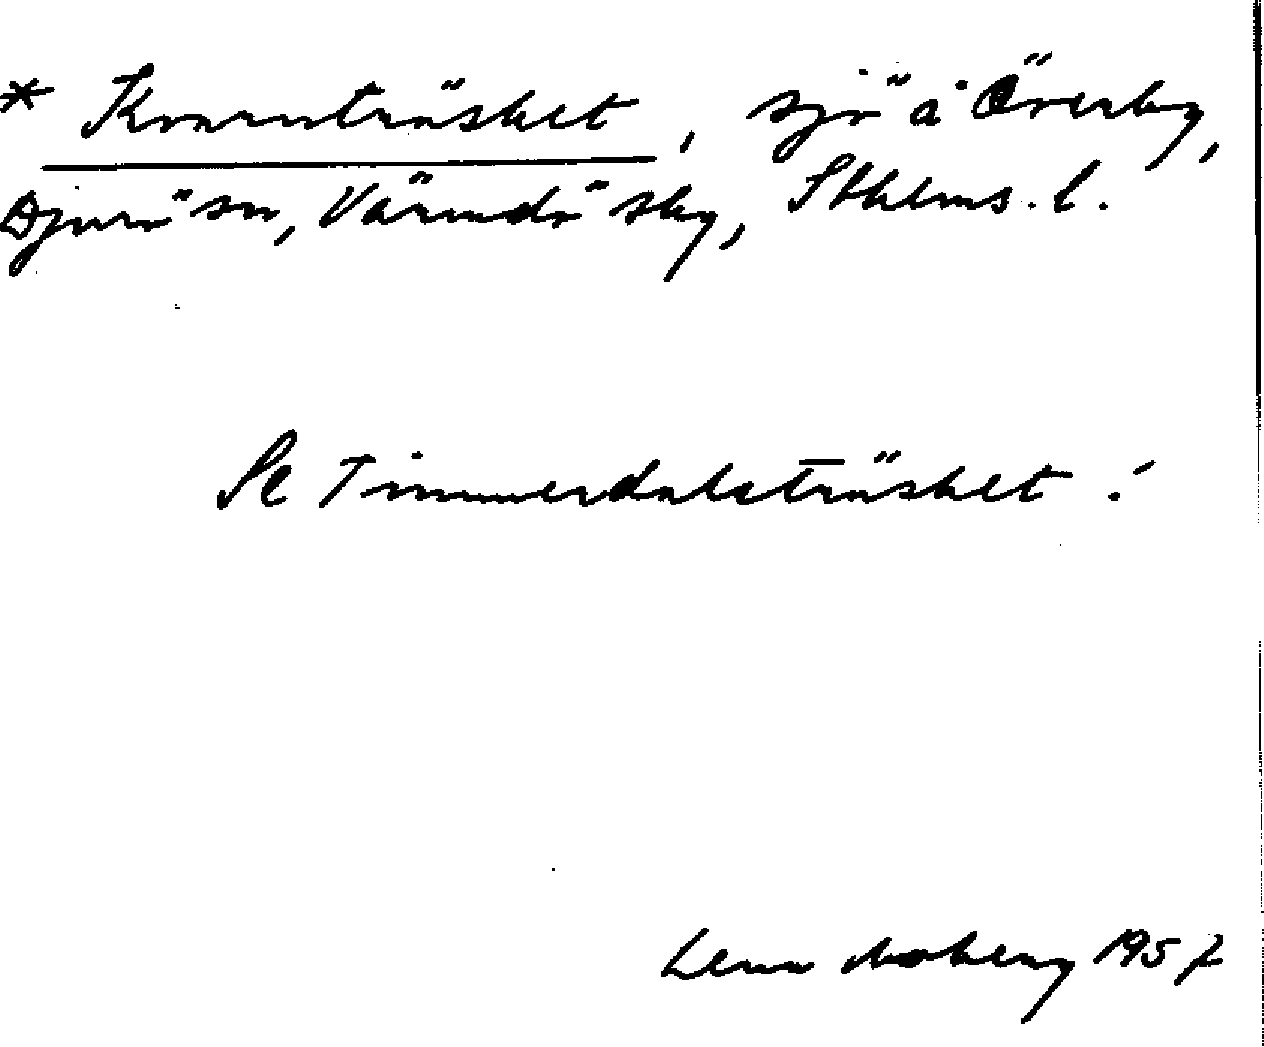 * Kvarnträsket, sjö å Överby,
Djurö sn, Värmdö skg, Sthlms. l.
Se Timmerdalsträsket!
Lena Moberg 1957